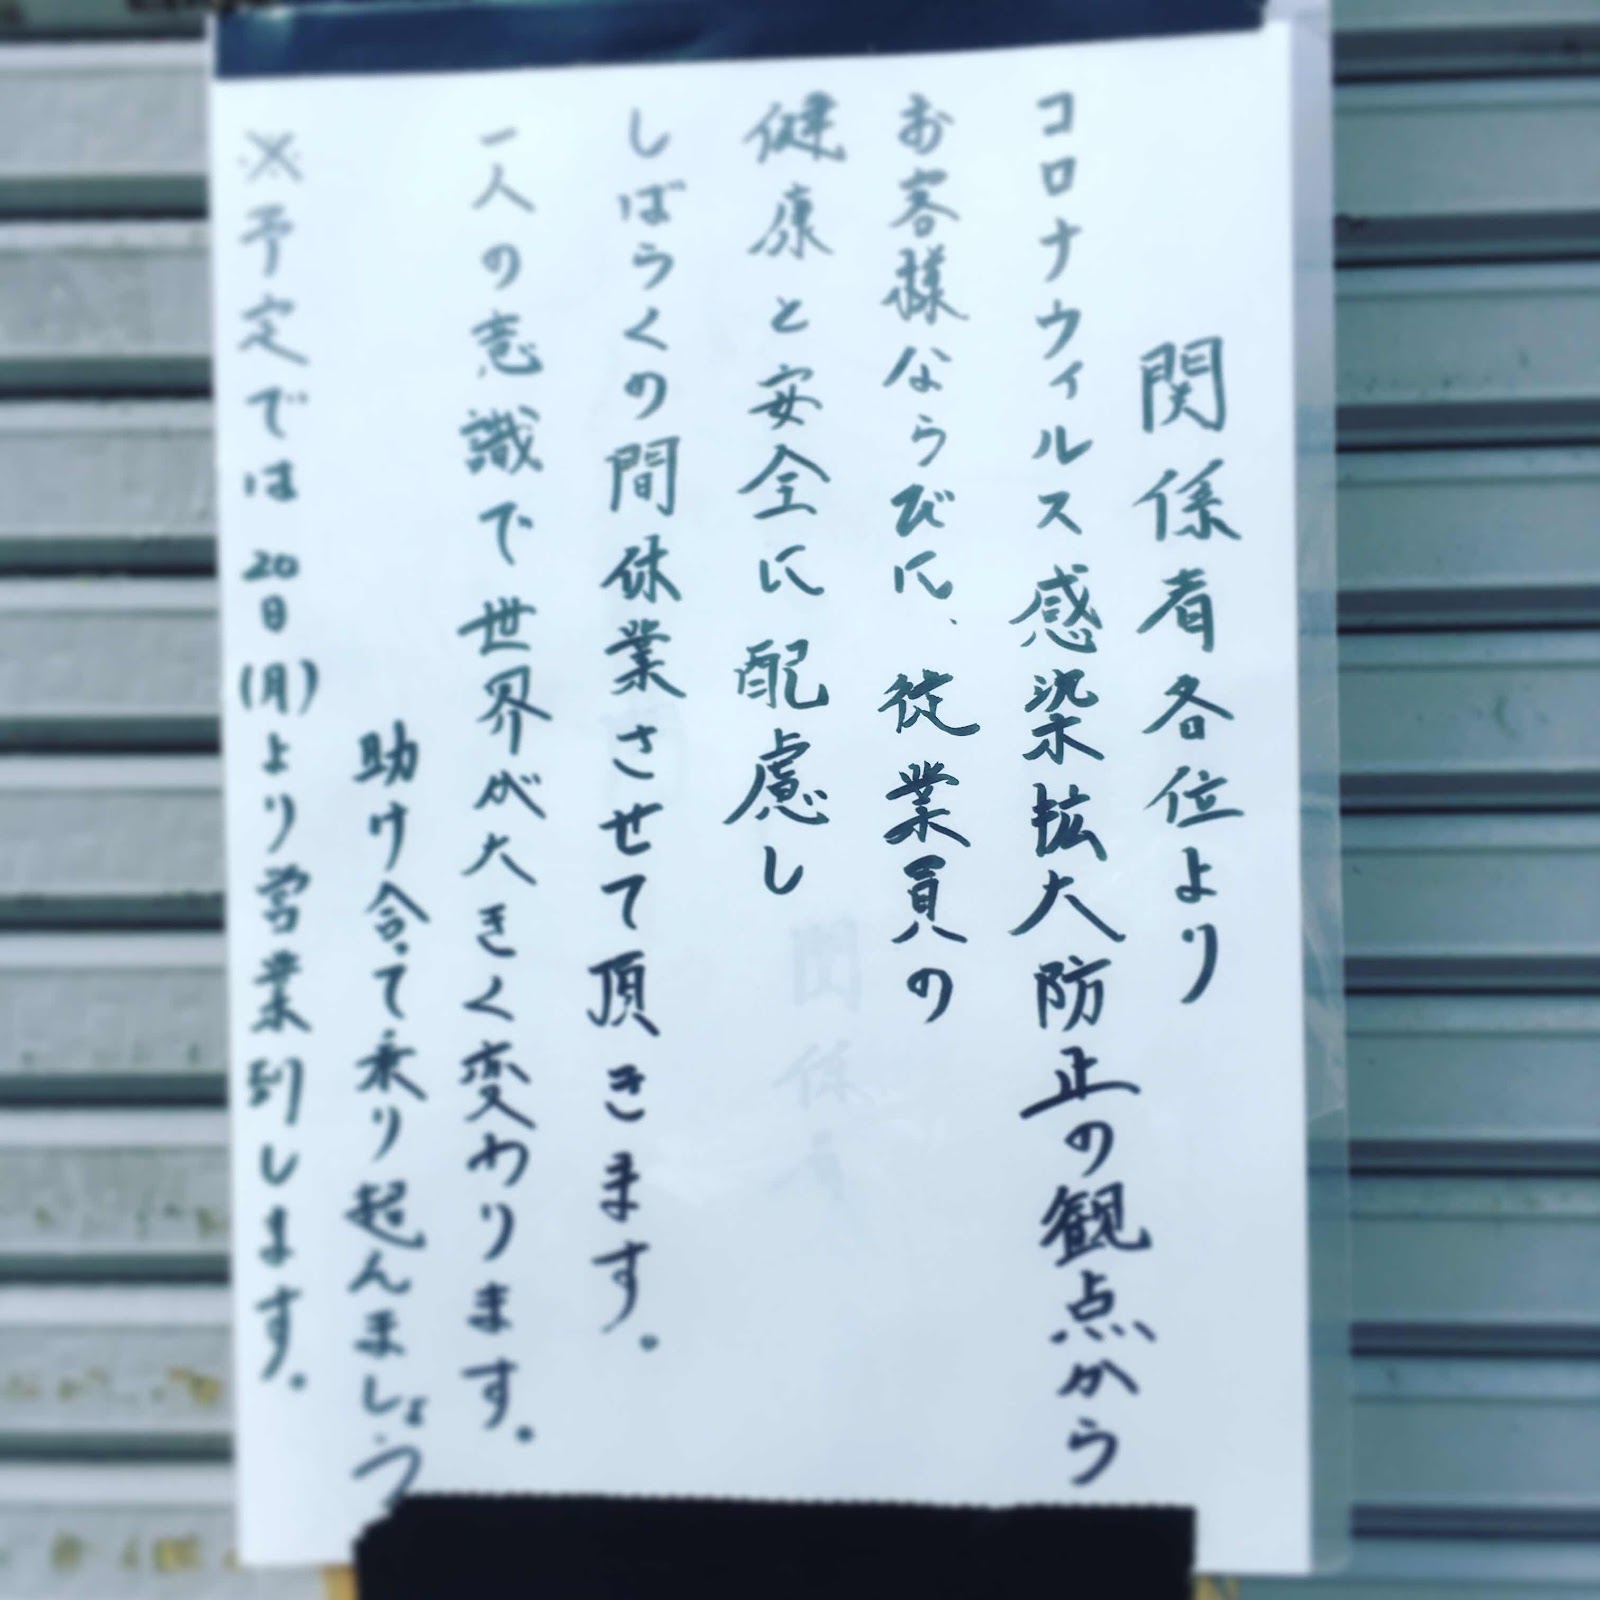 関係者各位より
コロナウィルス感染拡大防止の観点から
お客様ならびに、従業員の
健康と安全に配慮し
しばらくの間休業させて頂きます。
一人の意識で世界が大きく変わります。
助け合って乗り起んましょう
※予定では20日(月)より営業到します。
関係者